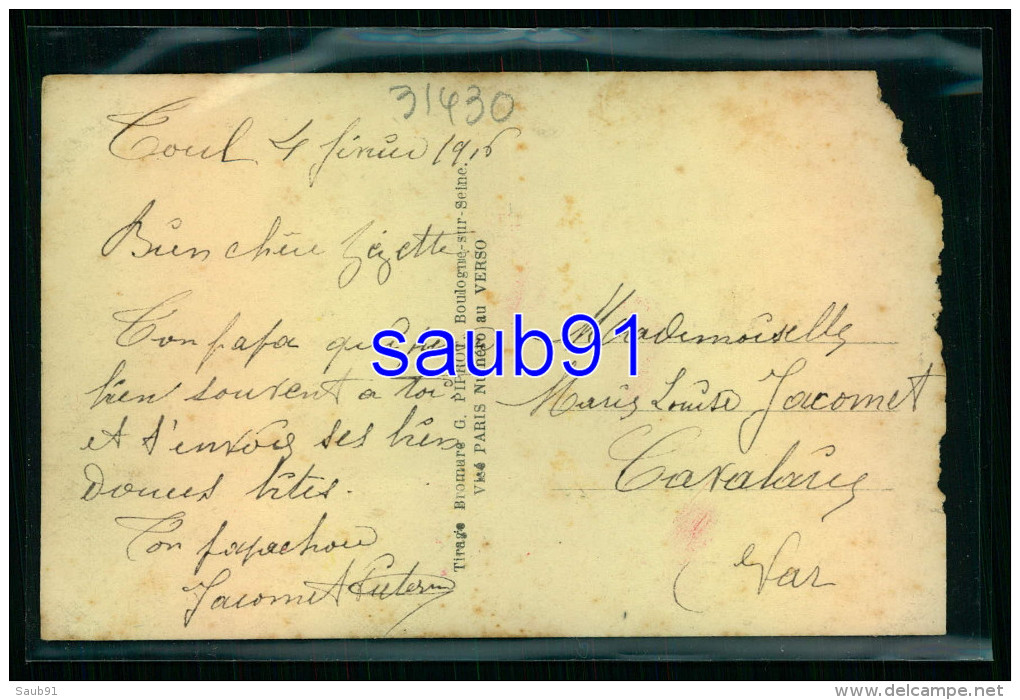 31430
Toul 4 février 1916
Bien chère Zézette
Ton papa qui pense
bien souvent à toi
et t'envoie ses bien
douces bises.
Ton papa chou
Jacomet
Tirage Bromure G. PIPROT, Boulogne-sur-Seine.
Visé PARIS Numéro au VERSO
Mademoiselle
Marie Louise Jacomet
Cavalaire
Var
saub91
Saub91
delcampe.net